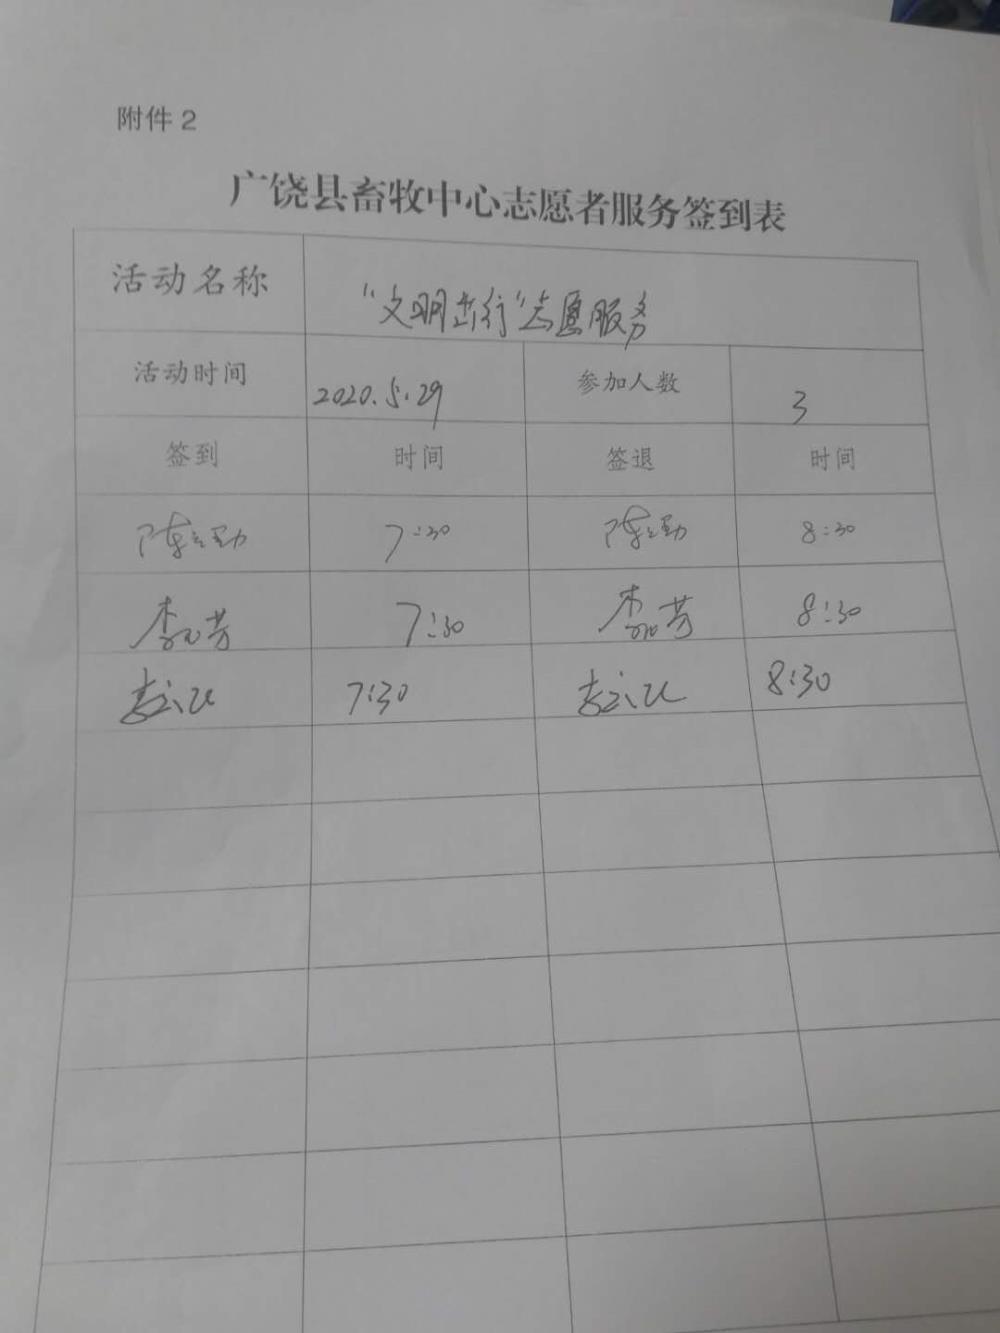 附件 2
广饶县畜牧中心志愿者服务签到表
活动名称 "文明出行"志愿服务
活动时间 2020.5.29 参加人数 3
签到 时间 签退 时间
陈 勤 7:30 陈 勤 8:30
李 芳 7:30 李 芳 8:30
7:30 8:30